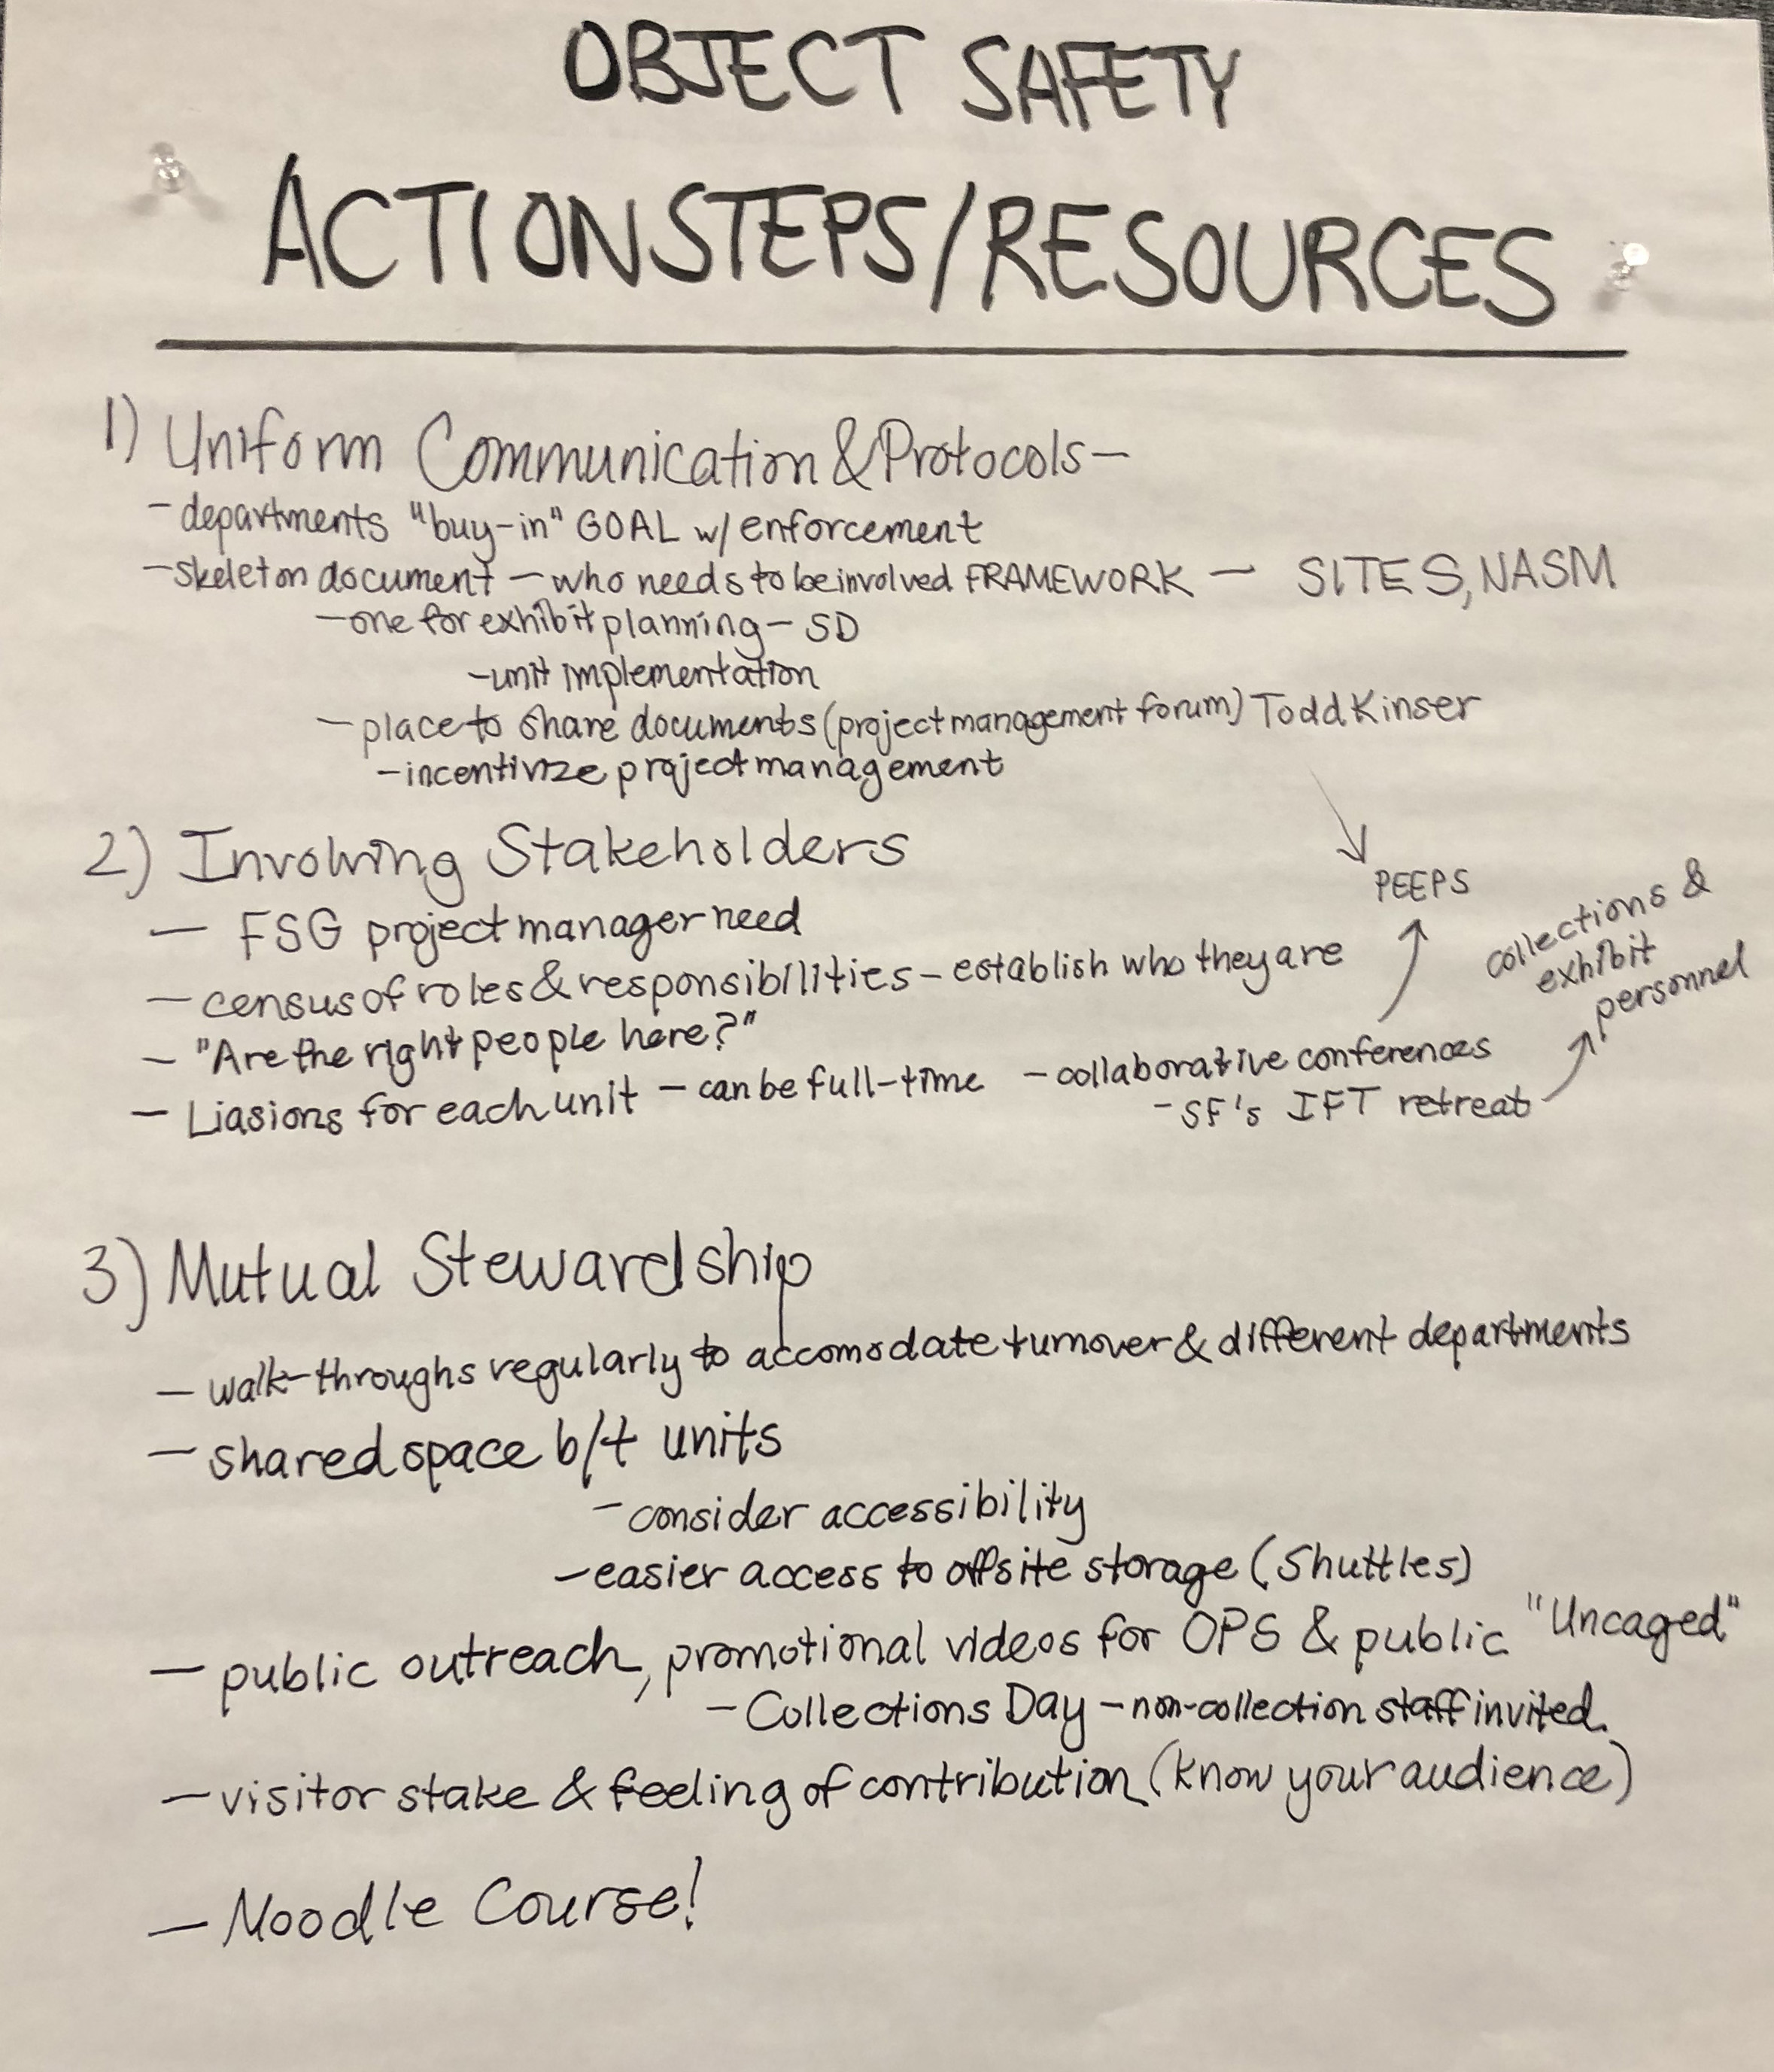 OBJECT SAFETY
ACTIONSTEPS/RESOURCES
1) Uniform Communication & Protocols -
- departments "buy-in" GOAL w/ enforcement
- skeleton document - who needs to be involved FRAMEWORK - SITES, NASM
- one for exhibit planning - SD
- unit implementation
- place to share documents (project management forum) Todd Kinser
- incentivize project management
2) Involving Stakeholders
PEEPS
- FSG project manager need
collections &
exhibit
personnel
- census of roles & responsibilities - establish who they are
- "Are the right people here?"
- Liasions for each unit - can be full-time - collaborative conferences
- SF's IFT retreat
3) Mutual Stewardship
- walk-throughs regularly to accomodate turnover & different departments
- shared space b/t units
- consider accessibility
- easier access to offsite storage (shuttles)
- public outreach, promotional videos for OPS & public "Uncaged"
- Collections Day - non-collection staff invited.
- visitor stake & feeling of contribution (know your audience)
- Moodle Course!